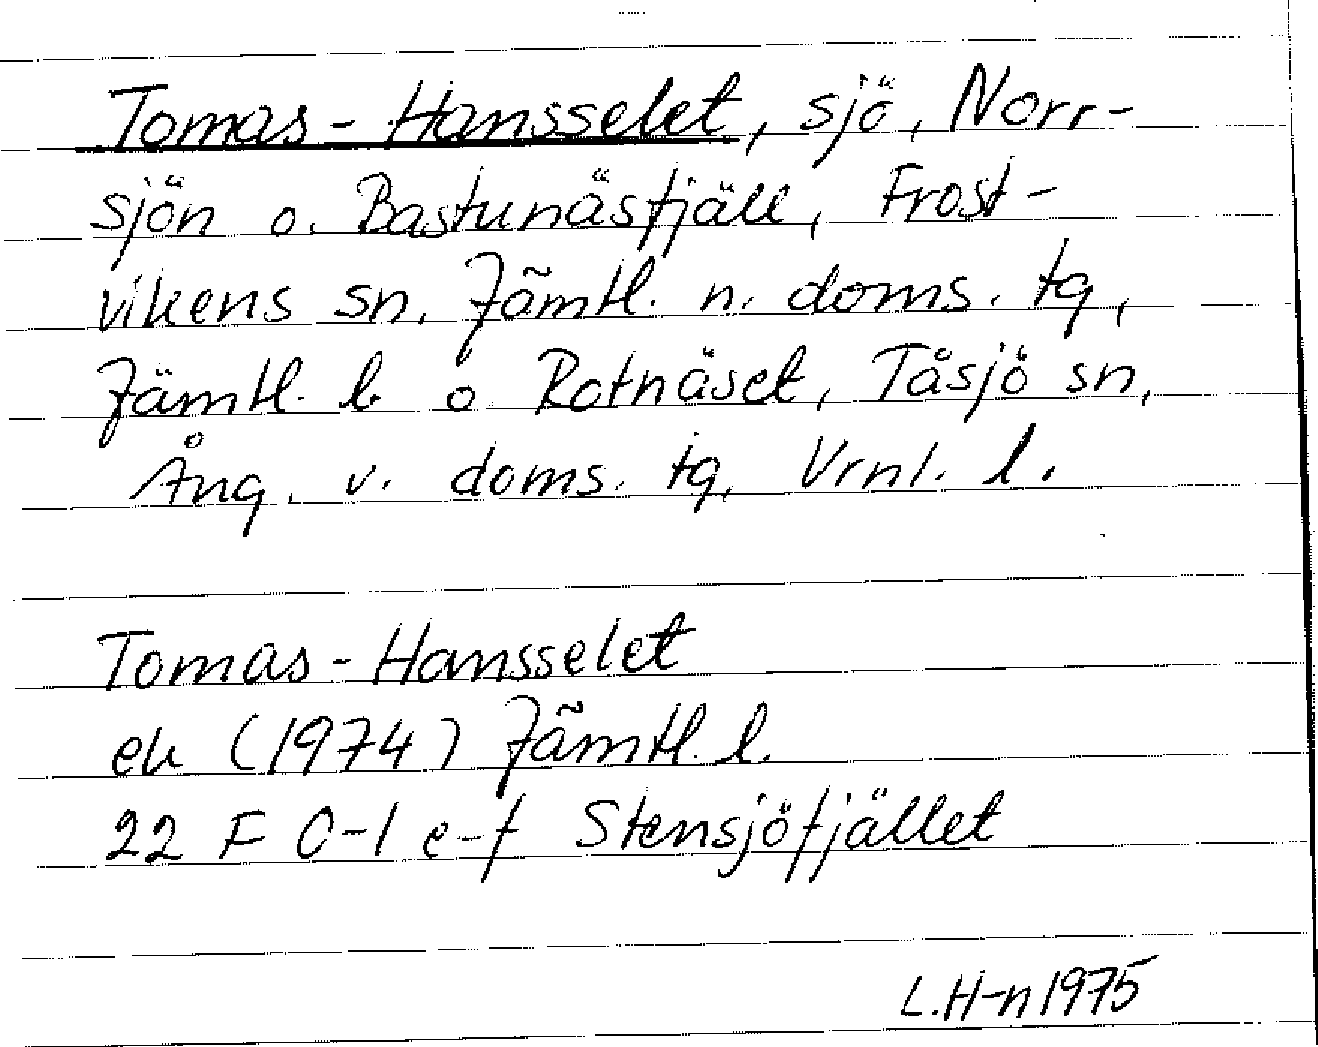 Tomas-Hansselet, sjö, Norr-
sjön o. Bastunästjäll, Frost-
vikens sn. Jämtl. n. doms. tg,
Jämtl. l. o Rotnäset, Tåsjö sn,
Ång. v. doms. tg, Vrnl. l.
Tomas-Hansselet
ek (1974) Jämtl. l.
22 F 0-1 e-f Stensjöfjället
L.H-n 1975